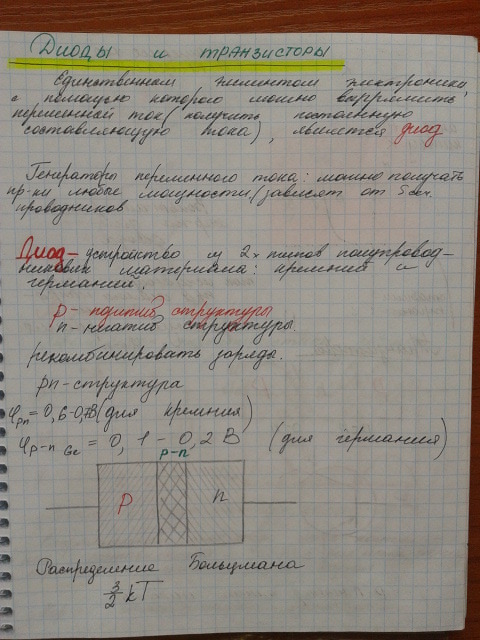 Диоды и транзисторы
Единственным элементом электроники,
с помощью которого можно выпрямить
переменный ток (получить постоянную
составляющую тока), является диод
Генераторы переменного тока: можно получать
пр-ки любые мощности (зависят от Sсеч.
проводников
Диод – устройство из 2х типов полупровод-
никовых материала: кремний и
германией.
p - позитив структуры
n - негатив структуры.
рекомбинировать заряды.
pn-структура
φpn = 0,6-0,7В (для кремния)
φp-n Ge = 0,1 - 0,2 В (для германия)
p-n
p n
Распределение Больцмана
3/2 kT